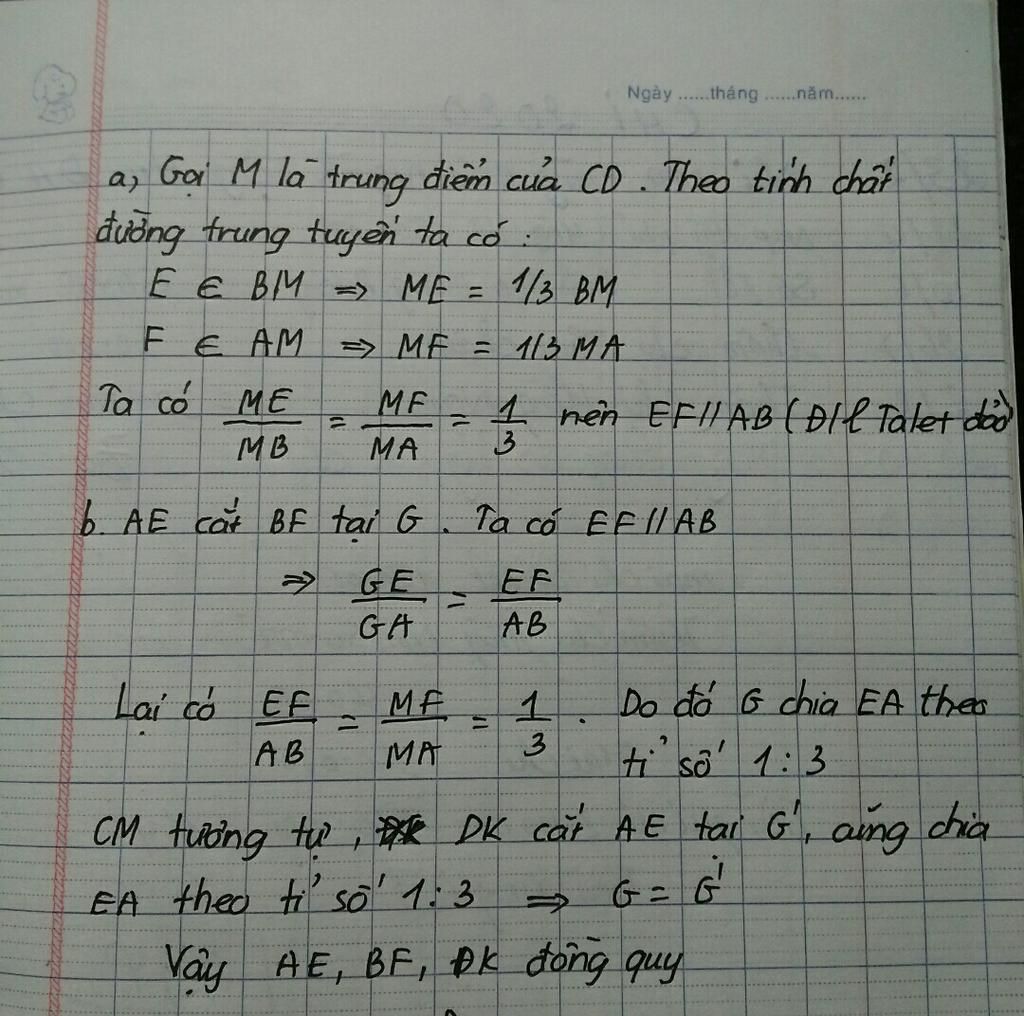 Ngày ......tháng ......năm......
a, Gọi M là trung điểm của CD. Theo tính chất
đường trung tuyến ta có:
E ∈ BM ⇒ ME = 1/3 BM
F ∈ AM ⇒ MF = 1/3 MA
Ta có ME/MB = MF/MA = 1/3 nên EF // AB (Đ/l Talet đảo)
b. AE cắt BF tại G. Ta có EF // AB
⇒ GE/GA = EF/AB
Lại có EF/AB = MF/MA = 1/3. Do đó G chia EA theo
tỉ số 1:3
CM tương tự, DK cắt AE tại G', cũng chia
EA theo tỉ số 1:3 ⇒ G = G'
Vậy AE, BF, ĐK đồng quy